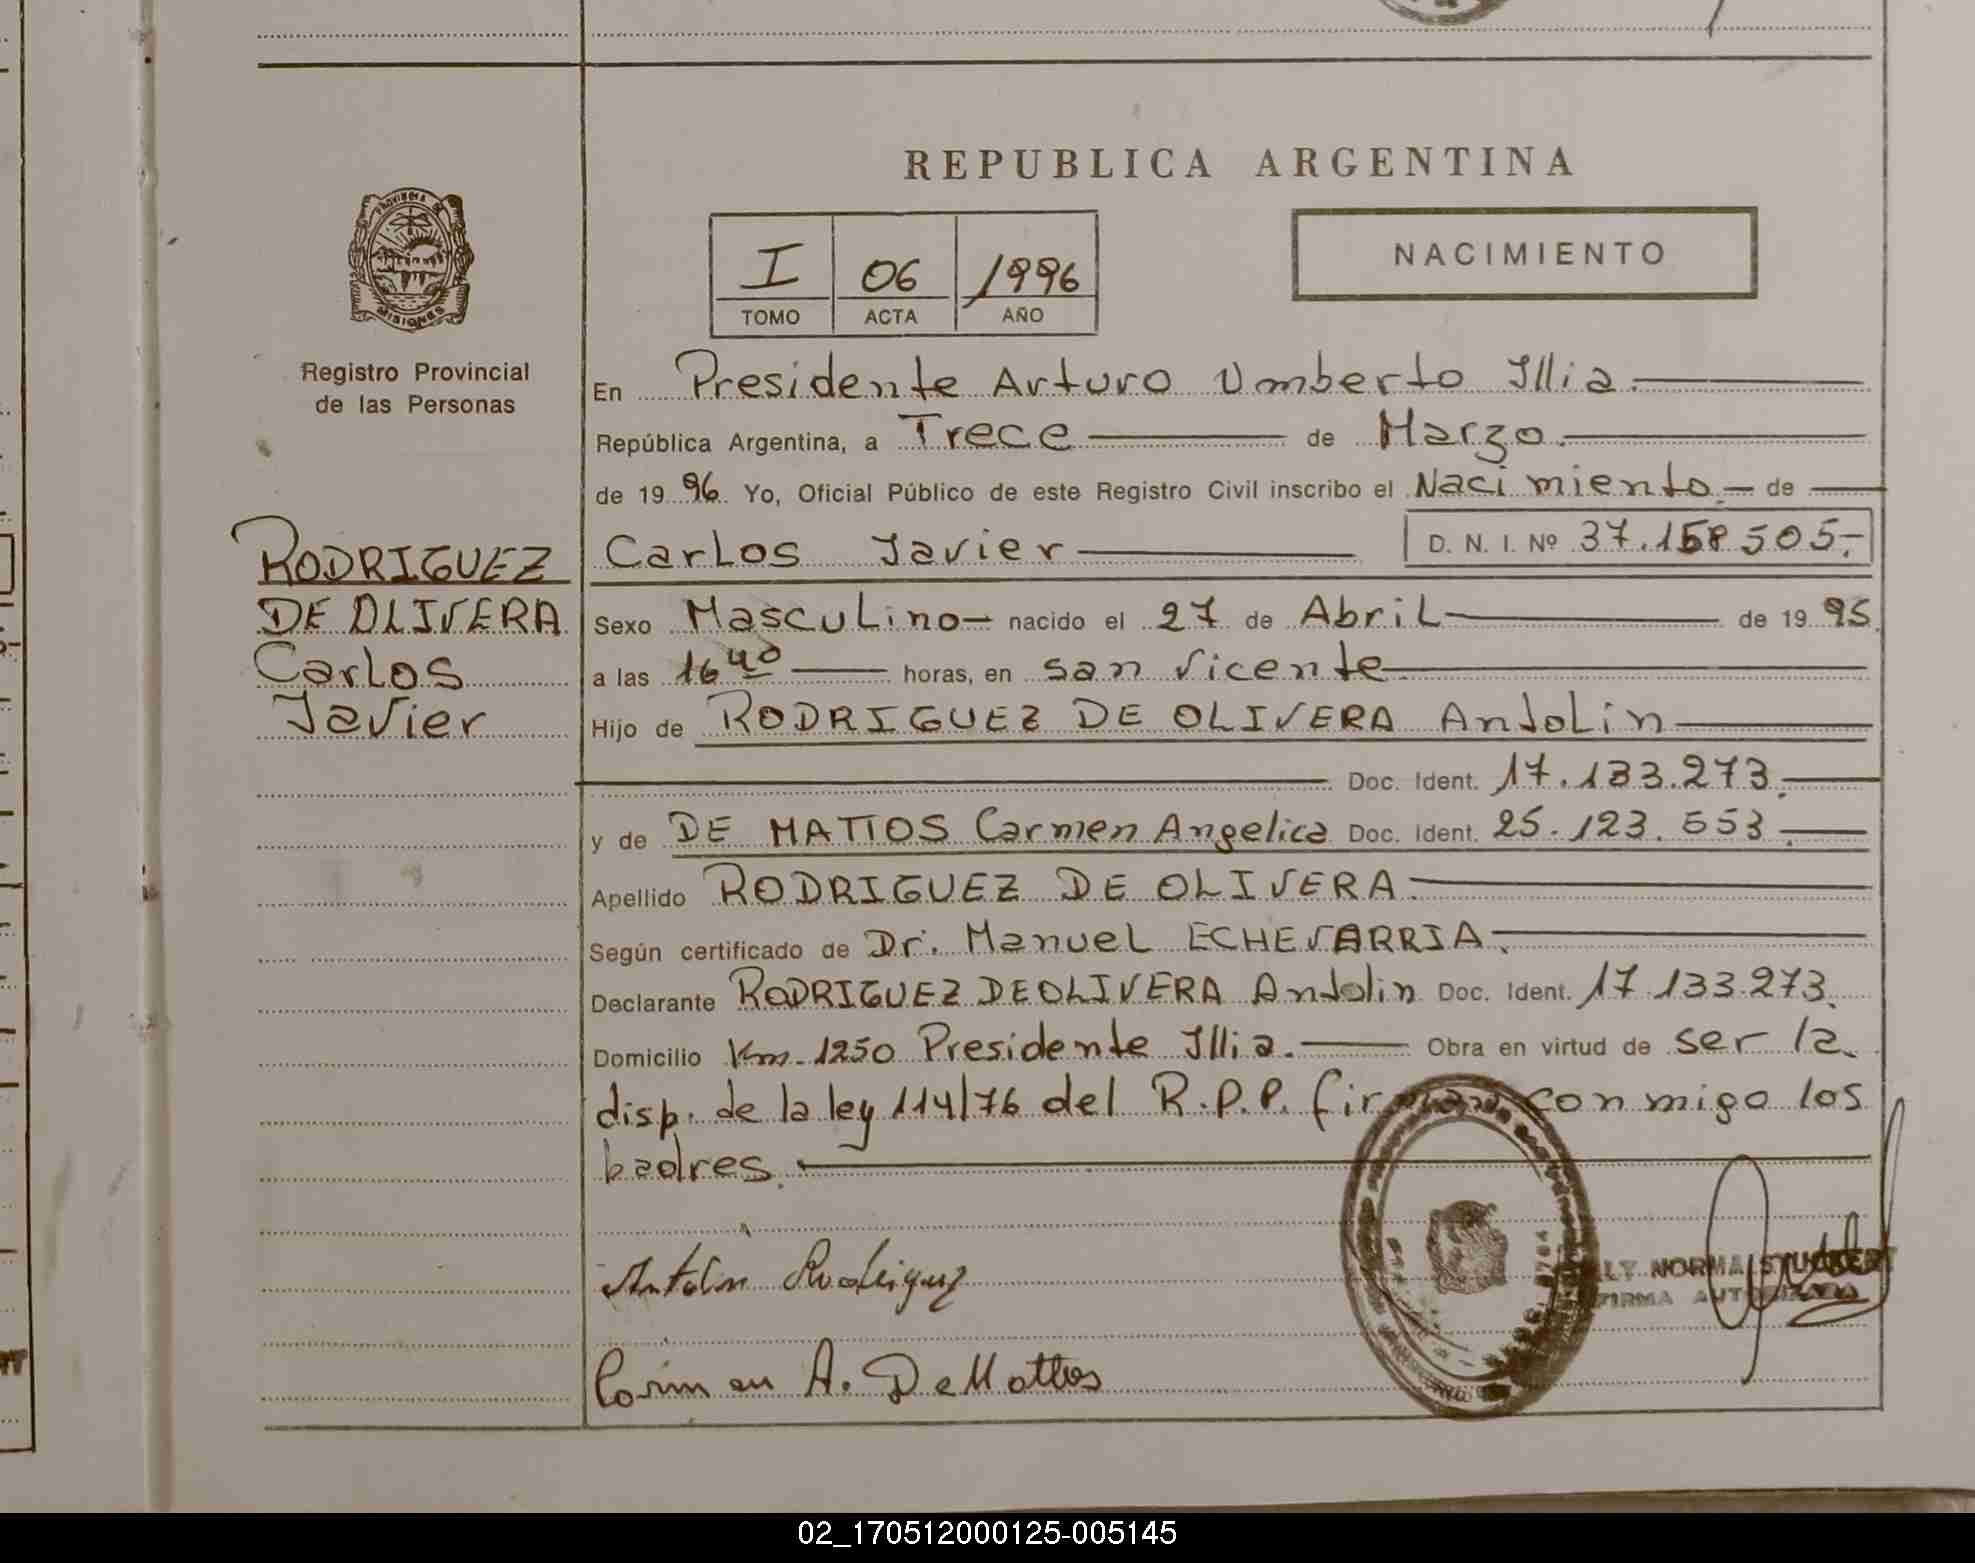 REPUBLICA ARGENTINA
PROVINCIA DE
MISIONES
Registro Provincial
de las Personas
I 06 1996
TOMO ACTA AÑO
NACIMIENTO
En Presidente Arturo Umberto Illia.
República Argentina, a Trece de Marzo.
de 1996. Yo, Oficial Público de este Registro Civil inscribo el Nacimiento.- de
Carlos Javier D. N. I. Nº 37.158505.-
RODRIGUEZ
DE OLIVERA
Carlos
Javier
Sexo Masculino nacido el 27 de Abril de 1995
a las 16 40 horas, en san vicente
Hijo de RODRIGUEZ DE OLIVERA Antolin
Doc. Ident. 17.133.273.
y de DE MATTOS Carmen Angelica Doc. Ident. 25.123.553.
Apellido RODRIGUEZ DE OLIVERA.
Según certificado de Dr. Manuel ECHEVARRIA.
Declarante RODRIGUEZ DE OLIVERA Antolin Doc. Ident. 17.133.273.
Domicilio Km. 1250 Presidente Illia. Obra en virtud de ser la
disp. de la ley 114/76 del R.P.P. firman conmigo los
padres.
Antolin Rodriguez
NORMA
FIRMA AUTORIZADA
Carmen A. De Mattos
02_170512000125-005145